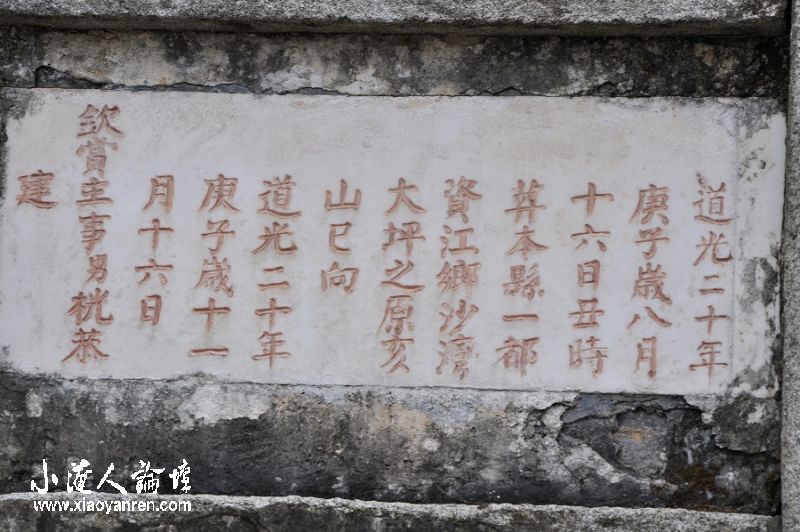 道光二十年
庚子歲八月
十六日丑時
葬本縣一都
資江鄉沙灣
大坪之原亥
山巳向
道光二十年
庚子歲十一
月十六日
欽賞主事男桄恭
建
小淹人論壇
www.xiaoyanren.com